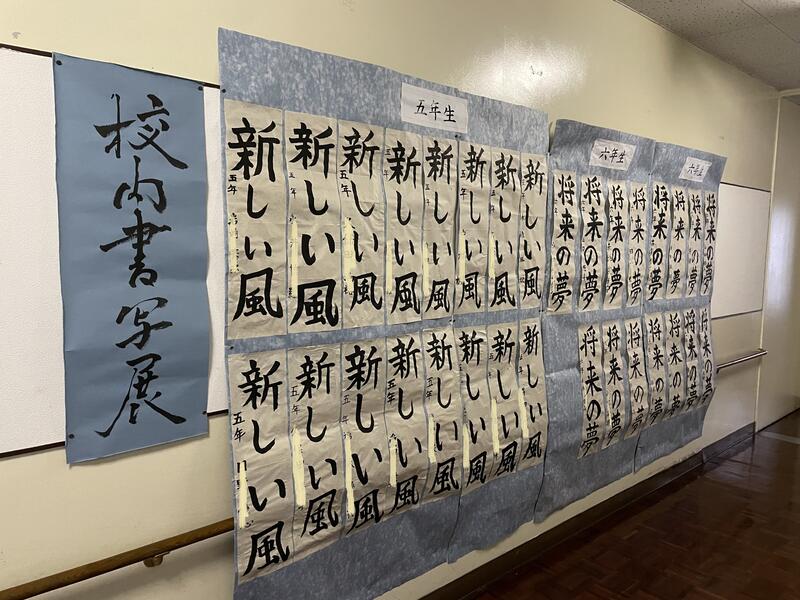 校内書写展
五年生
新しい風
五年
新しい風
五年
新しい風
五年
新しい風
新しい風
新しい風
新しい風
新しい風
新しい風
五年
新しい風
五年
新しい風
五年
新しい風
五年
新しい風
新しい風
新しい風
新しい風
六年生
将来の夢
将来の夢
将来の夢
将来の夢
将来の夢
将来の夢
将来の夢
六年生
将来の夢
将来の夢
将来の夢
将来の夢
将来の夢
将来の夢
将来の夢
将来の夢